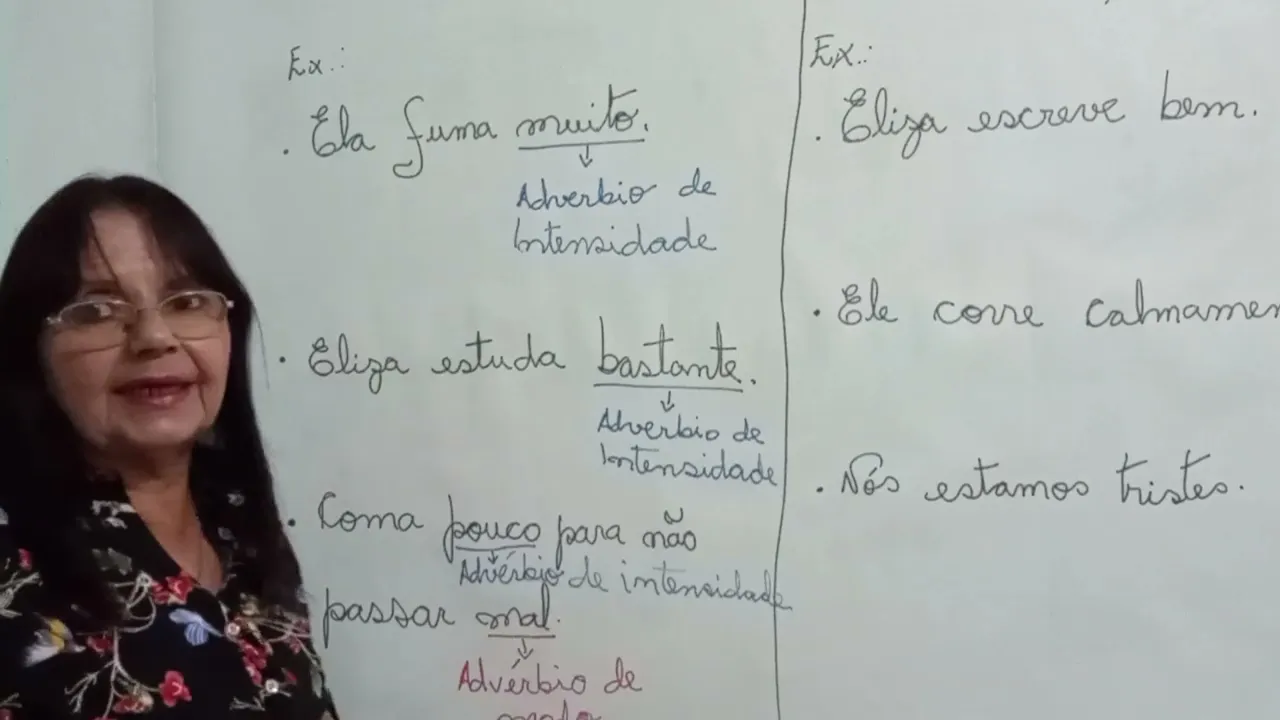 Ex.:
. Ela fuma muito.
Adverbio de
Intensidade
. Eliza estuda bastante.
Adverbio de
Intensidade
. Coma pouco para não
Advérbio de intensidade
passar mal.
Advérbio de
modo
Ex.:
. Eliza escreve bem.
. Ele corre calmamen
. Nós estamos tristes.